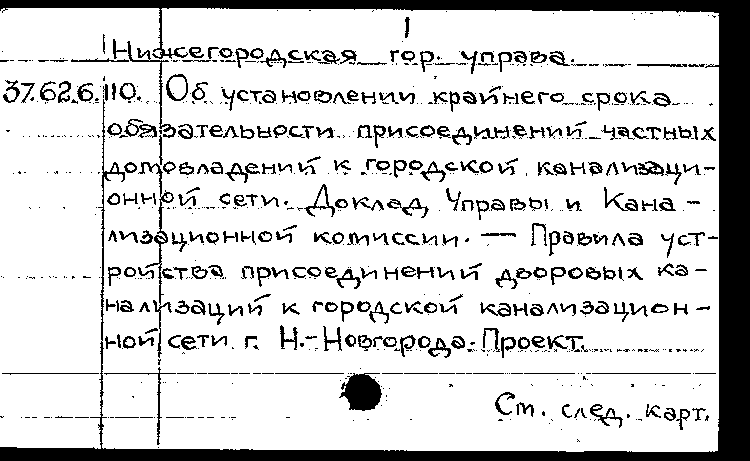 1
Нижегородская гор. управа.
37.62.6.110. Об установлении крайнего срока
обязательности присоединений частных
домовладений к городской канализаци-
онной сети. Доклад Управы и Кана-
лизационной комиссии. — Правила уст-
ройства присоединений дворовых ка-
нализаций к городской канализацион-
ной сети г. Н.-Новгорода. Проект.
См. след. карт.